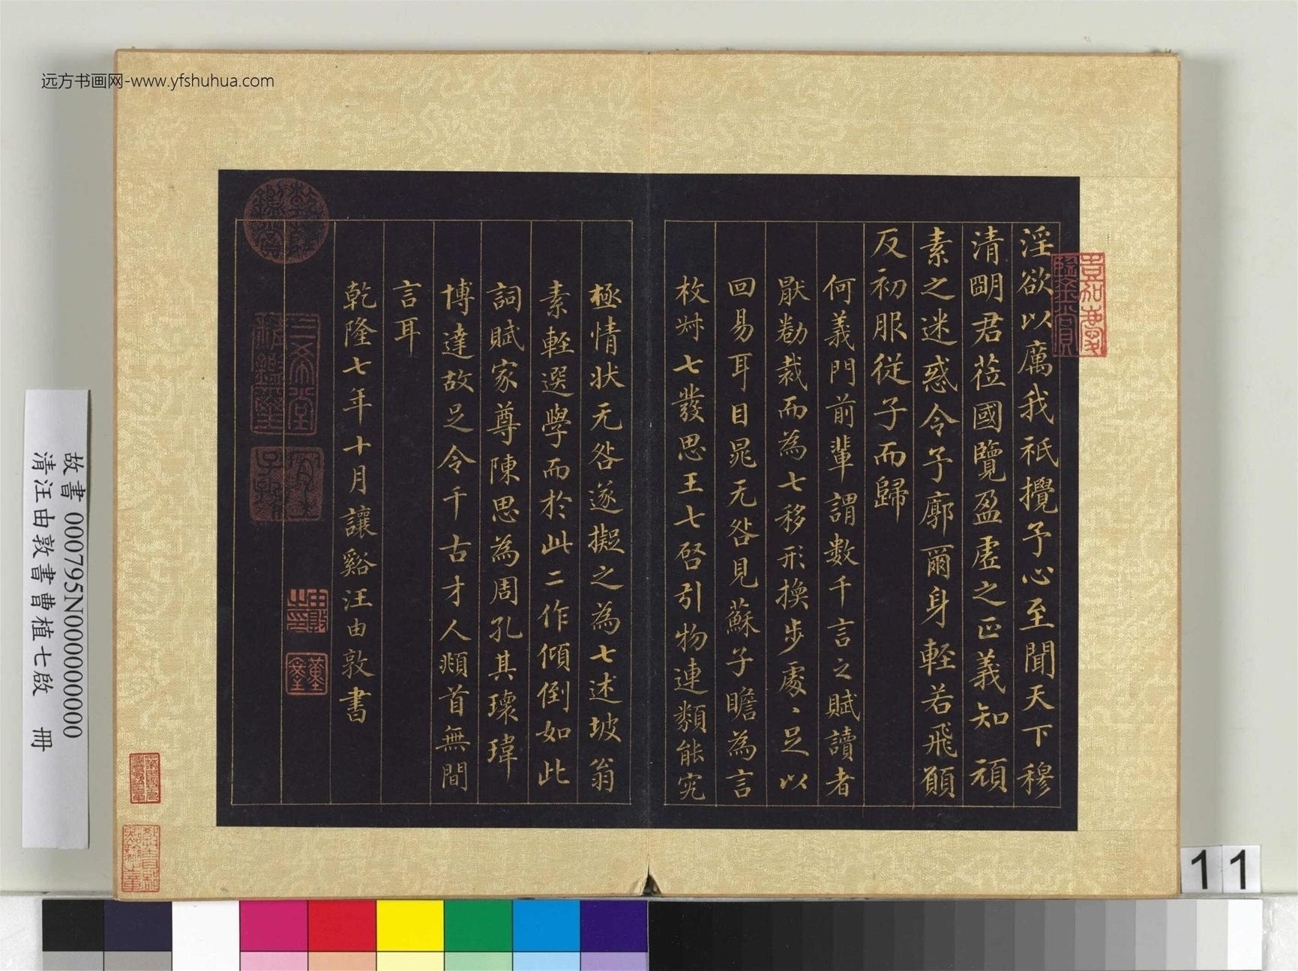 远方书画网-www.yfshuhua.com
淫欲以厲我祇攪予心至聞天下穆
清朙君莅國覽盈虛之正義知頑
素之迷惑令予廓爾身輕若飛願
反初服從子而歸
何義門前輩謂數千言之賦讀者
厭勌裁而為七移形換步處〻足以
回易耳目晁无咎見蘇子瞻為言
枚叔七發思王七啓引物連類能究
極情狀无咎遂擬之為七述坡翁
素輕選學而於此二作傾倒如此
詞賦家尊陳思為周孔其瓌瑋
博達故足令千古才人頫首無間
言耳
乾隆七年十月讓谿汪由敦書
嘉慶鑑賞
乾隆鑑賞
三希堂精鑑璽
宜子孫
故書 000795N000000000
清汪由敦書曹植七啟 冊
11